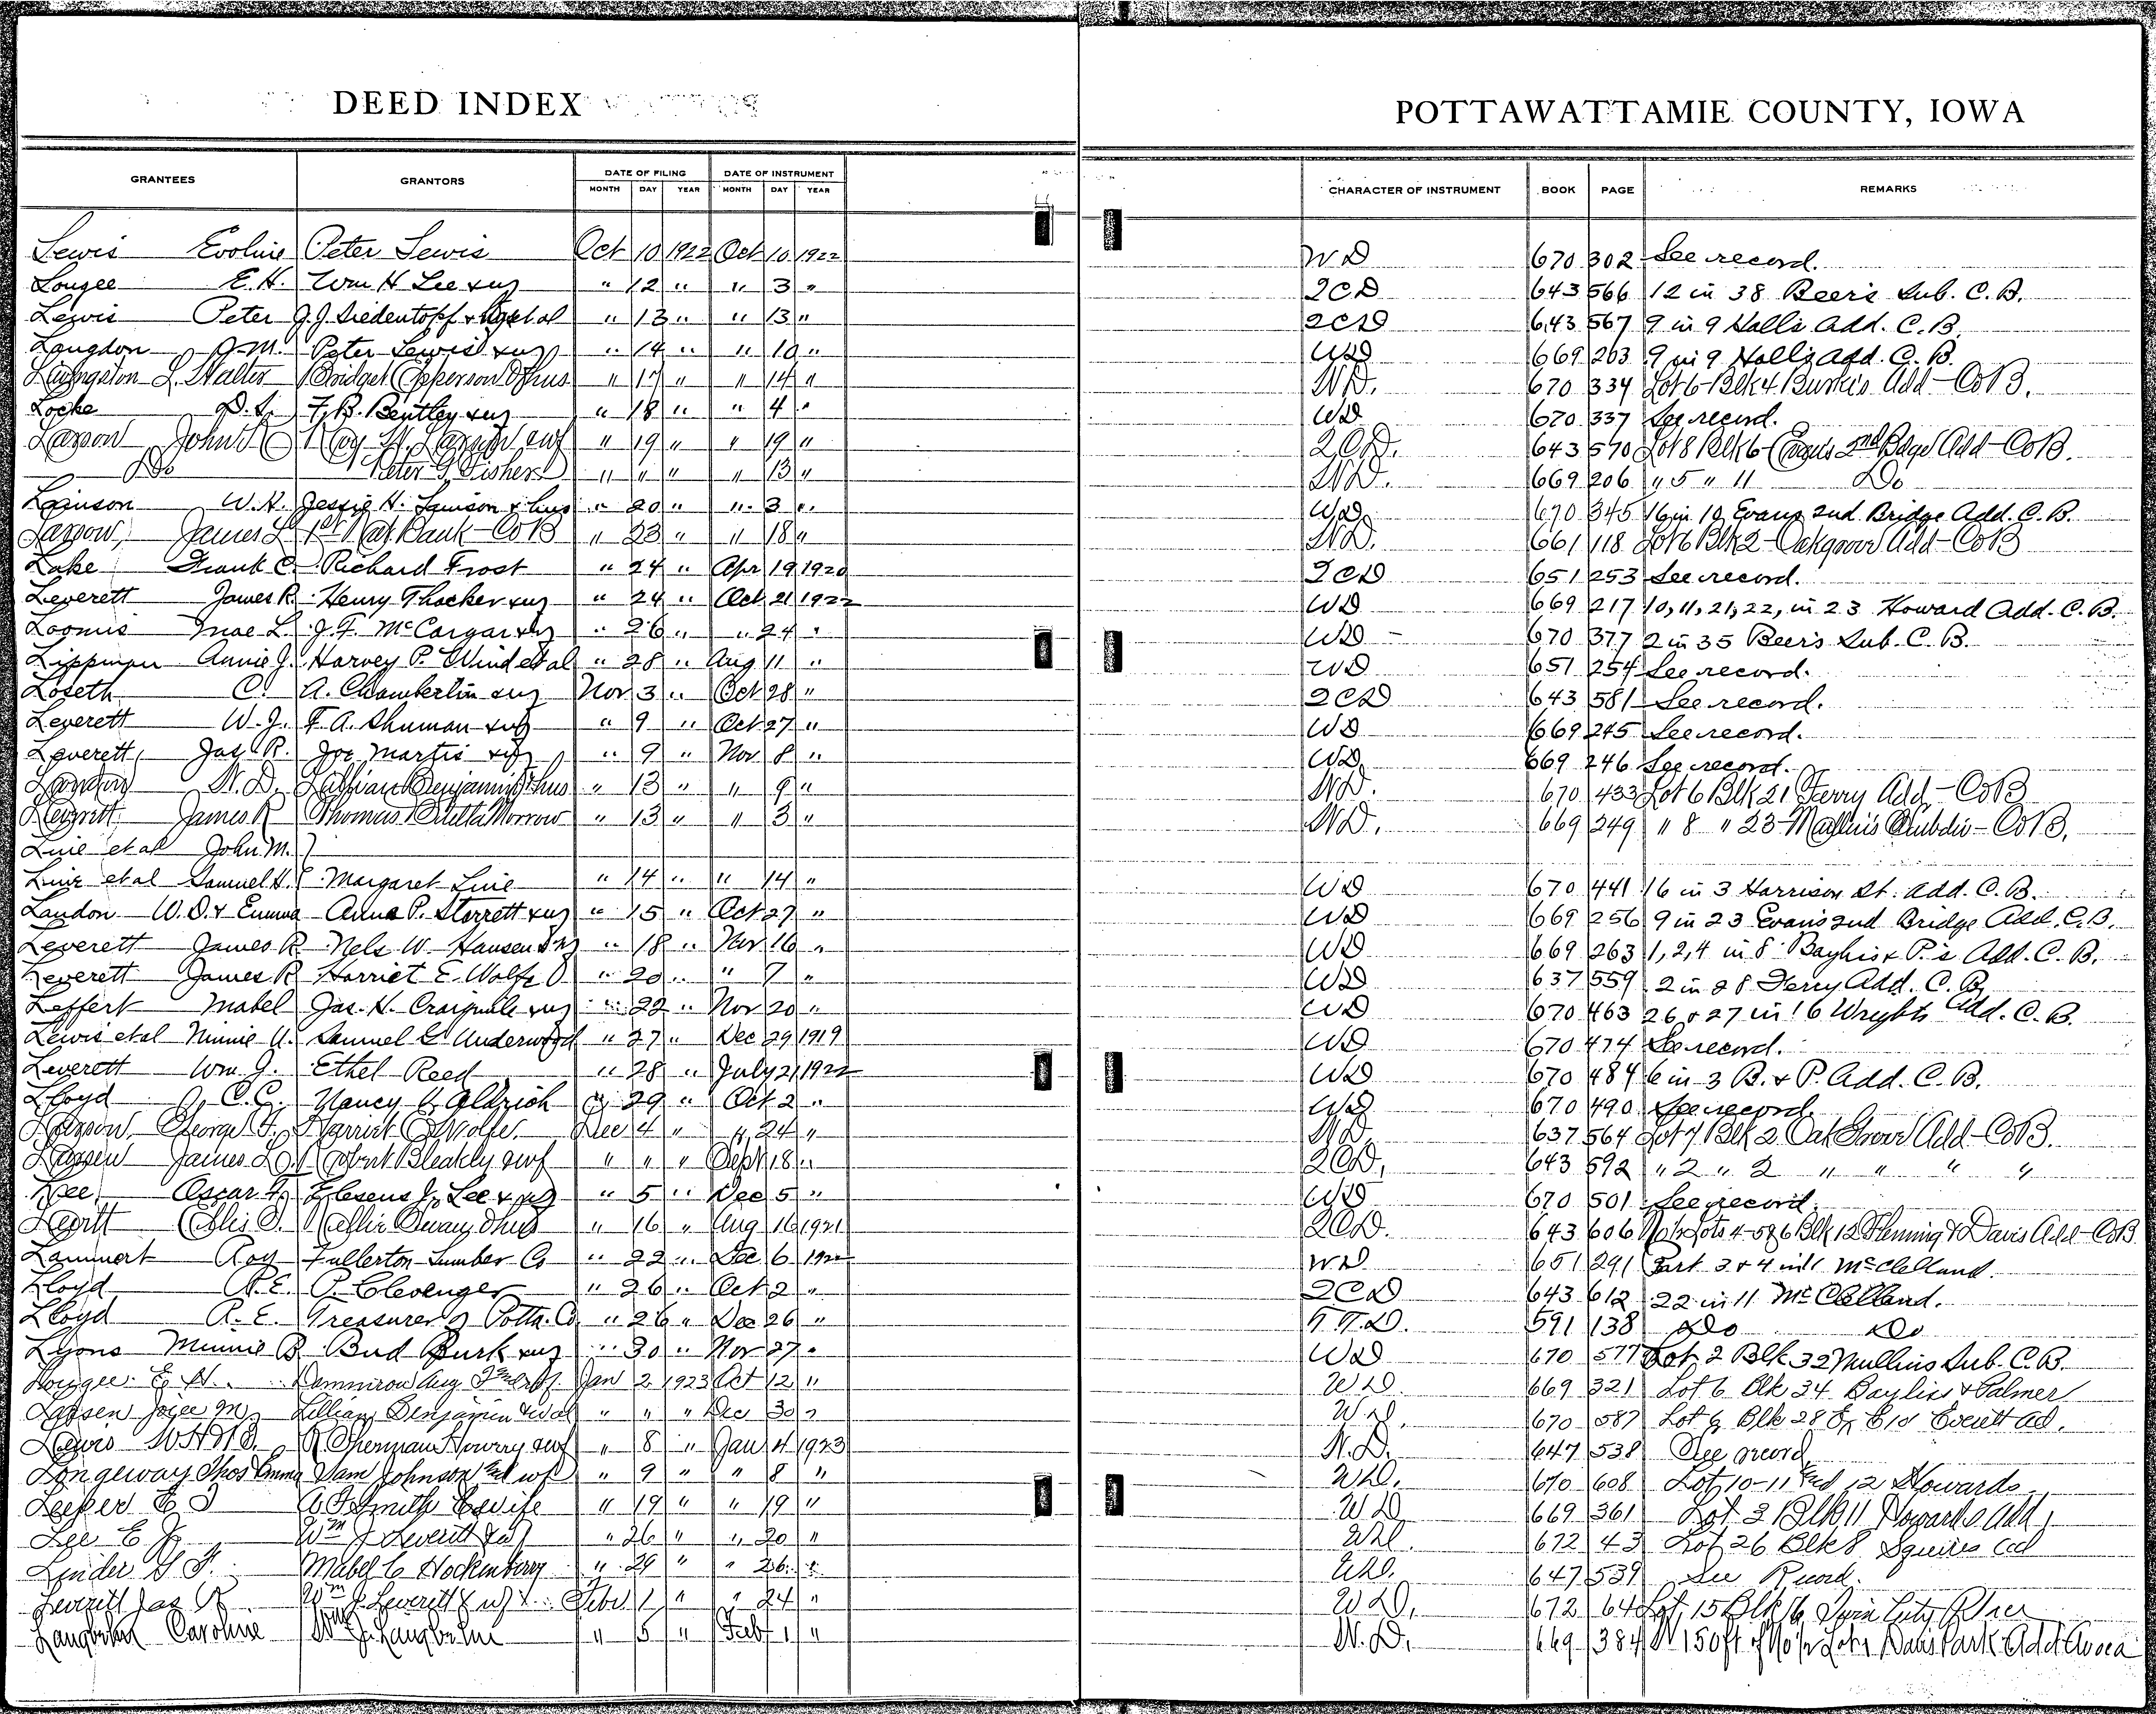 DEED INDEX
POTTAWATTAMIE COUNTY, IOWA
GRANTEES GRANTORS DATE OF FILING DATE OF INSTRUMENT CHARACTER OF INSTRUMENT BOOK PAGE REMARKS
MONTH DAY YEAR MONTH DAY YEAR
Lewis Evoline Peter Lewis Oct 10 1922 Oct 10 1922 WD 670 302 See record.
Lougee E.H. Wm H Lee & wf " 12 " " 3 " QCD 643 566 12 in 38 Beer's Sub. C.B.
Lewis Peter J.J. Siedentopf & wf et al " 13 " " 13 " QCD 643 567 9 in 9 Hall's Add. C.B.
Langdon J.M. Peter Lewis & wf " 14 " " 10 " WD 669 203 9 in 9 Hall's Add. C.B.
Livingston L. Walter Bridget Epperson & hus " 17 " " 14 " WD. 670 334 Lot 6 - Blk 4 Burke's Add - Co B.
Locke D.L. F.B. Bentley & wf " 18 " " 4 " WD 670 337 See record.
Larson John Roy W. Larson & wf " 19 " " 19 " QCD. 643 570 Lot 8 Blk 6 - Evans 2nd Bdge Add - Co B.
Do Peter G. Fisher " " " " 13 " WD. 669 206 " 5 " 11 Do
Lainson W.H. Jessie H. Lainson & hus " 20 " " 3 " WD 670 345 16 in 10 Evans 2nd Bridge Add. C.B.
Larson, James L 1st Nat Bank - Co B " 23 " " 18 " WD. 661 118 Lot 6 Blk 2 - Oakgrove Add - Co B
Lake Frank C. Richard Frost " 24 " Apr 19 1920 QCD 651 253 See record.
Leverett James R. Henry Thacker & wf " 24 " Oct 21 1922 WD 669 217 10, 11, 21, 22, in 23 Howard Add. C.B.
Loomis Mae L. J.F. McCargar & wf " 26 " " 24 " WD 670 377 2 in 35 Beer's Sub. C.B.
Lippman Annie J. Harvey P. Wind et al " 28 " Aug 11 " WD 651 254 See record.
Loseth C. A. Chamberlin & wf Nov 3 " Oct 28 " QCD 643 581 See record.
Leverett W.J. F.A. Shuman & wf " 9 " Oct 27 " WD 669 245 See record.
Leverett, Jas. R. Joe Martis & wf " 9 " Nov 8 " WD 669 246 See record.
W.D. Lillian Benjamin & hus " 13 " " 9 " WD. 670 433 Lot 6 Blk 21 Ferry Add - Co B
Leverett, James R Thomas Odella Morrow " 13 " " 3 " WD. 669 249 " 8 " 23 - Mullin's Subdiv - Co B.
Line et al John M.
Line et al Samuel H. Margaret Line " 14 " " 14 " WD 670 441 16 in 3 Harrison St. Add. C.B.
Landon W.D. & Emma Anna P. Sterrett & wf " 15 " Oct 27 " WD 669 256 9 in 23 Evans 2nd Bridge Add. C.B.
Leverett James R. Nels W. Hansen & wf " 18 " Nov 16 " WD 669 263 1, 2, 4 in 8 Bayliss & P.'s Add. C.B.
Leverett James R Harriet E. Wolfe " 20 " " 7 " WD 637 559 2 in 28 Ferry Add. C.B.
Leffert Mabel Jas. H. Craigmile & wf " 22 " Nov 20 " WD 670 463 26 & 27 in 16 Wright's Add. C.B.
Lewis et al Minnie U. Samuel G. Underwood " 27 " Dec 29 1919 WD 670 474 See record.
Leverett Wm. J. Ethel Reed " 28 " July 21 1922 WD 670 484 6 in 3 B. & P. Add. C.B.
Lloyd C.C. Nancy Aldrich " 29 " Oct 2 " WD 670 490 See record
Larson, George F. Harriet E Wolfe. Dec 4 " " 24 " WD. 637 564 Lot 7 Blk 2. Oak Grove Add - Co B.
Larsen James L. Robert Bleakly & wf " " " Sept 18 " QCD. 643 592 " 2 " 2 " " " "
Lee, Oscar F. J. Lee & wf " 5 " Dec 5 " WD 670 501 See record.
Levitt Ellis Nellie Swan & hus " 16 " Aug 16 1921 QCD. 643 606 No ½ Lots 4-5 & 6 Blk 12 Fleming & Davis Add - Co B
Lammert Roy Fullerton Lumber Co " 22 " Dec 6 1922 WD 651 291 Part 3 & 4 in 1 McClelland.
Lloyd R.E. P. Clevenger " 26 " Oct 2 " QCD 643 612 22 in 11 McClelland.
Lloyd R.E. Treasurer of Potta. Co " 26 " Dec 26 " T.T.D. 591 138 Do Do
Lyons Minnie B. Bud Burk & wf " 30 " Nov 27 " WD 670 577 Lot 2 Blk 32 Mullins Sub. C.B.
Lougee E.H. Jan 2 1923 Oct 12 " WD. 669 321 Lot 6 Blk 34 Bayliss & Palmer
Larsen Joyce M. Lillian Benjamin et al " " " Dec 30 " WD. 670 587 Lot 9 Blk 28 Everett ad.
Lewis R Sherman Howry & wf " 8 " Jan 4 1923 W.D. 647 538 See record
Longeway Thos Emma Sam Johnson and wf " 9 " " 8 " WD. 670 608 Lot 10-11 and 12 Howards
Leeper E J A F Smith & wife " 19 " " 19 " WD 669 361 Lot 3 Blk 11 Howards Add
Lee E J. Wm J Leverett & wf " 26 " " 20 " WD. 672 43 Lot 26 Blk 8 Squires ad
Linder G F. Mabel C Hockenberry " 29 " " 26 " WD. 647 539 See Record.
Leverett Jas R Wm J Leverett & wf Feb 1 " " 24 " WD. 672 64 Lot 15 Blk 16 Twin City
Caroline Wm J. " 5 " Feb 1 " W.D. 669 384 W 150 ft of No ½ Lot Davis Park Add Avoca